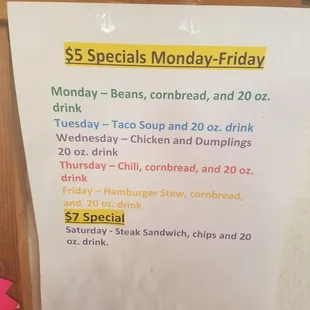 $5 Specials Monday-Friday
Monday – Beans, cornbread, and 20 oz.
drink
Tuesday – Taco Soup and 20 oz. drink
Wednesday – Chicken and Dumplings
20 oz. drink
Thursday – Chili, cornbread, and 20 oz.
drink
Friday – Hamburger Stew, cornbread,
and 20 oz. drink
$7 Special
Saturday - Steak Sandwich, chips and 20
oz. drink.